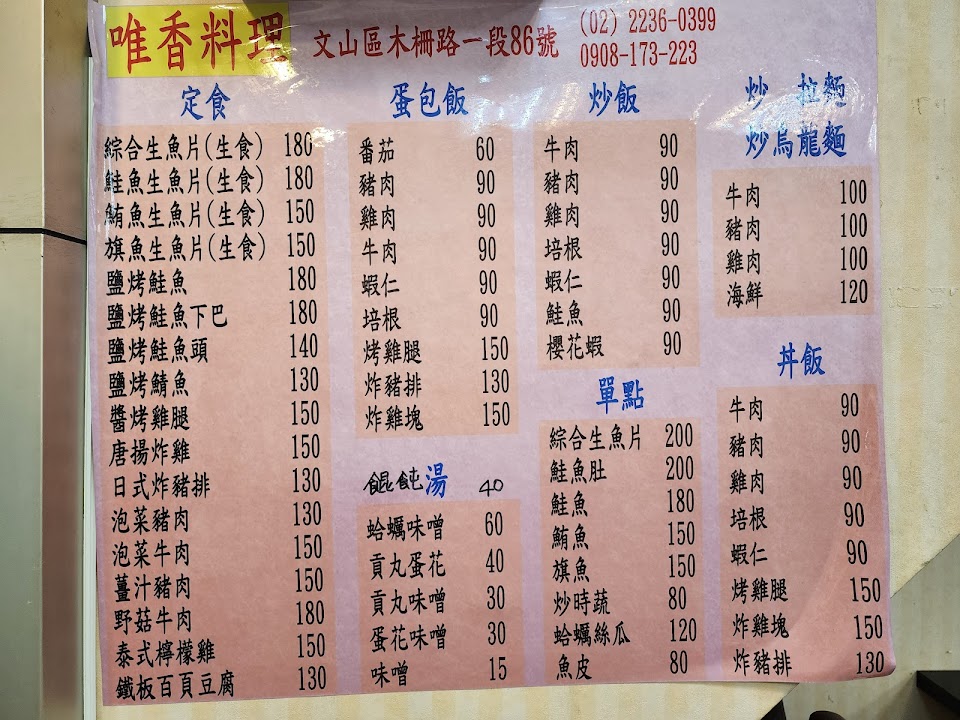 唯香料理 文山區木柵路一段86號 (02) 2236-0399
0908-173-223
定食
綜合生魚片(生食) 180
鮭魚生魚片(生食) 180
鮪魚生魚片(生食) 150
旗魚生魚片(生食) 150
鹽烤鮭魚 180
鹽烤鮭魚下巴 180
鹽烤鮭魚頭 140
鹽烤鯖魚 130
醬烤雞腿 150
唐揚炸雞 150
日式炸豬排 130
泡菜豬肉 130
泡菜牛肉 150
薑汁豬肉 150
野菇牛肉 180
泰式檸檬雞 150
鐵板百頁豆腐 130
蛋包飯
番茄 60
豬肉 90
雞肉 90
牛肉 90
蝦仁 90
培根 90
烤雞腿 150
炸豬排 130
炸雞塊 150
餛飩湯 40
蛤蠣味噌 60
貢丸蛋花 40
貢丸味噌 30
蛋花味噌 30
味噌 15
炒飯
牛肉 90
豬肉 90
雞肉 90
培根 90
蝦仁 90
鮭魚 90
櫻花蝦 90
單點
綜合生魚片 200
鮭魚肚 200
鮭魚 180
鮪魚 150
旗魚 150
炒時蔬 80
蛤蠣絲瓜 120
魚皮 80
炒 拉麵
炒烏龍麵
牛肉 100
豬肉 100
雞肉 100
海鮮 120
丼飯
牛肉 90
豬肉 90
雞肉 90
培根 90
蝦仁 90
烤雞腿 150
炸雞塊 150
炸豬排 130